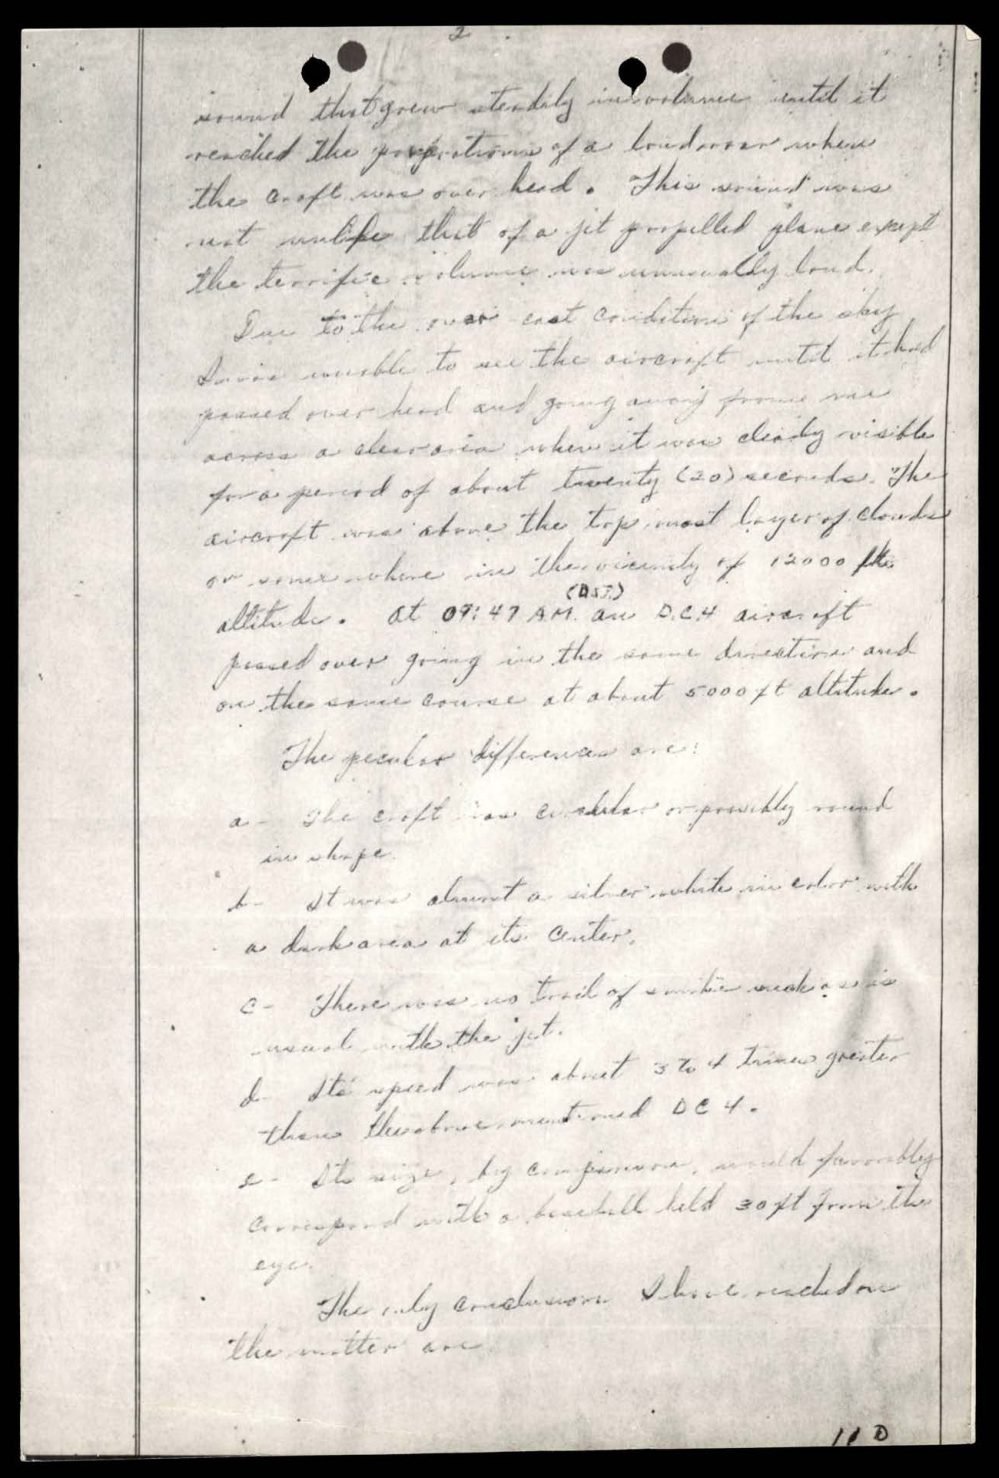 2
sound that grew steadily in volume until it
reached the proportions of a loud roar when
the craft was over head. This sound was
not unlike that of a jet propelled plane except
the terrific volume was unusually loud.
Due to the over cast condition of the sky
I was unable to see the aircraft until it had
passed over head and going away from me
across a clear area where it was clearly visible
for a period of about twenty (20) seconds. The
aircraft was above the top most layer of clouds
or some where in the vicinity of 12000 ft
altitude. At 09:47 A.M. (DST) an D.C.4 aircraft
passed over going in the same direction and
on the same course at about 5000 ft altitude.
The peculiar differences are:
a- The craft was circular or possibly round
in shape.
b- It was almost a silver white in color with
a dark area at its center.
c- There was no trail of smoke such as is
usual with the jet.
d- Its speed was about 3 to 4 times greater
than the above mentioned DC4.
e- Its size, by comparison, would favorably
correspond with a baseball held 30 ft from the
eye.
The only conclusions I have reached on
the matter are
11 D